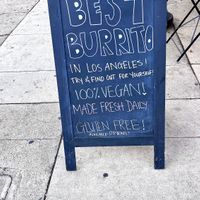 BEST
BURRITO
IN LOS ANGELES!
TRY & FIND OUT FOR YOURSELF!
100% VEGAN!
MADE FRESH DAILY
GLUTEN FREE!